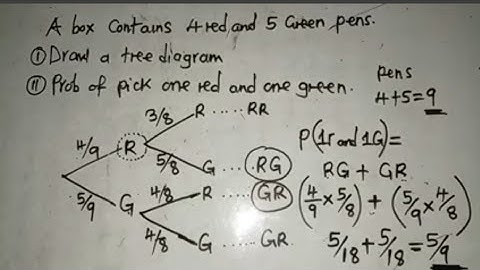 A box contains 4 red and 5 Green pens.
① Draw a tree diagram
⑪ Prob of pick one red and one green.
pens
4+5=9
4/9 R 3/8 R ..... RR
5/8 G ... RG
5/9 G 4/8 R ..... GR
4/8 G ..... GR
P(1r and 1G)=
RG + GR
(4/9 × 5/8) + (5/9 × 4/8)
5/18 + 5/18 = 5/9